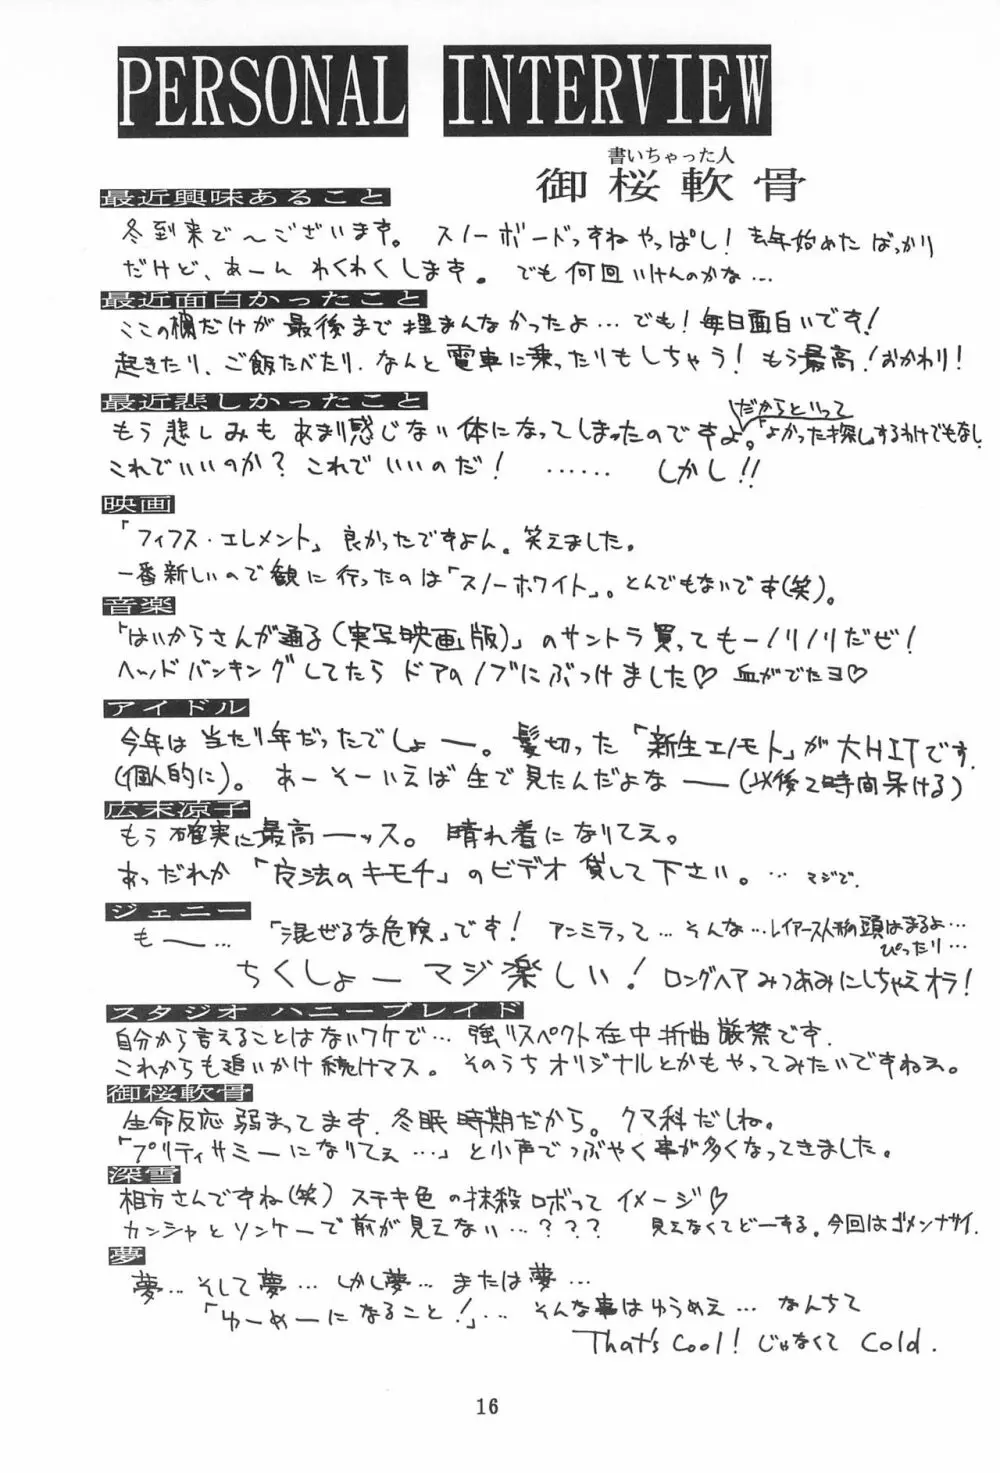 PERSONAL INTERVIEW
書いちゃった人
御桜軟骨
最近興味あること
冬到来で〜ございます。 スノーボードっすねやっぱし!去年始めたばっかり
だけど、あーんわくわくします。でも何回いけんのかな…
最近面白かったこと
ここの欄だけが最後まで埋まんなかったよ…でも!毎日面白いです!
起きたり、ご飯たべたり、なんと電車に乗ったりもしちゃう!もう最高!おかわり!
最近悲しかったこと
もう悲しみもあまり感じない体になってしまったのですよ。だからといって「よかった探しするわけでもなし
これでいいのか?これでいいのだ! …… しかし!!
映画
「フィフス・エレメント」良かったですよん。笑えました。
一番新しいので観に行ったのは「スノーホワイト」。とんでもないです(笑)。
音楽
「はいからさんが通る(実写映画版)」のサントラ買ってもーノリノリだぜ!
ヘッドバンキングしてたらドアのノブにぶつけました♡ 血がでたヨ♡
アイドル
今年は当たり年だったでしょー。髪切った「新生エノモト」が大HITです.
(個人的に)。あーそーいえば生で見たんだよなー(以後2時間呆ける)
広末涼子
もう確実に最高ーッス。晴れ着になりてえ。
あっだれか「の法のキモチ」のビデオ貸して下さい。…マジで.
ジェニー
もー… 「混ぜるな危険」です! アンミラって…そんな…レイアース人形の頭はまるよ…
ぴったり…
ちくしょーマジ楽しい! ロングヘアみつあみにしちゃえオラ!
スタジオ ハニーブレイド
自分から言えることはないワケで… 強リスペクト在中折曲厳禁です.
これからも追いかけ続けマス。そのうちオリジナルとかもやってみたいですねえ。
御桜軟骨
生命反応弱まってます.冬眠時期だから。クマ科だしね。
「プリティサミーになりてえ…」と小声でつぶやく事が多くなってきました。
深雪
相方さんですね(笑)ステキ色の抹殺ロボってイメージ♡
カンシャとソンケーで前が見えない…??? 見えなくてどーする。今回はゴメンナサイ.
夢
夢…そして夢…しかし夢…または夢…
「ゆーめーになること!」…そんな事はゆうめえ…なんちて
That's Cool! じゃなくて Cold.
16